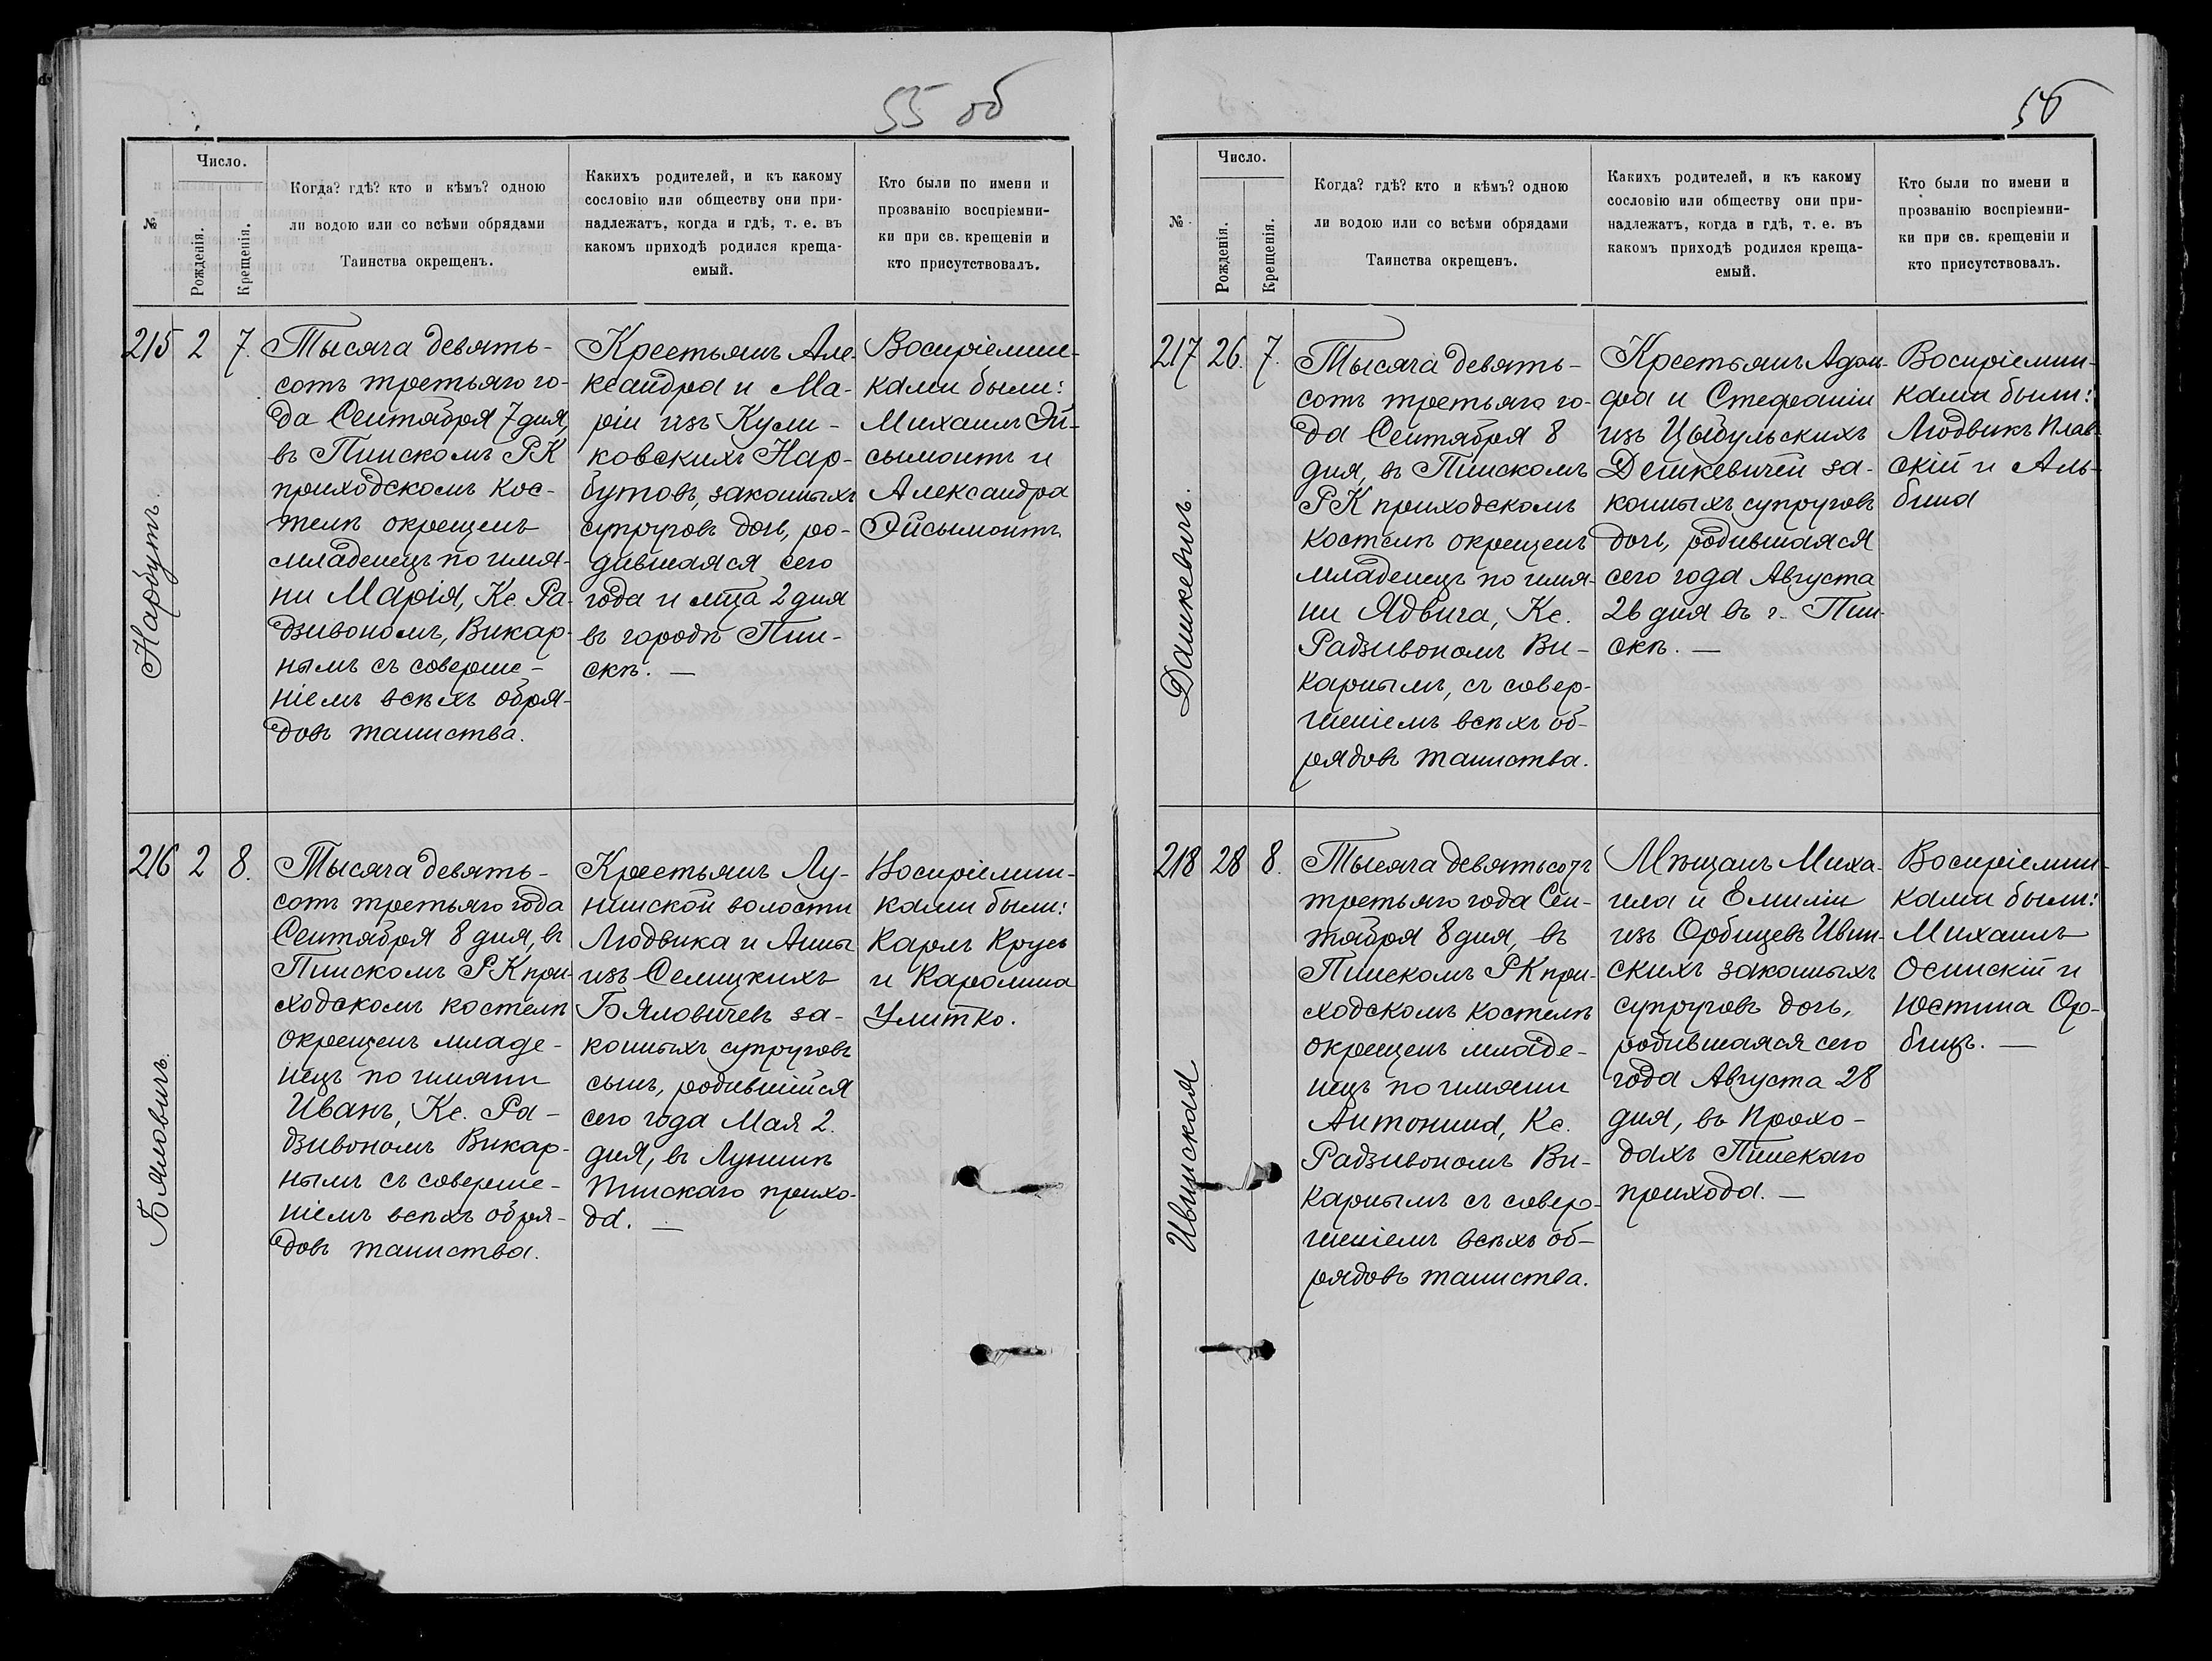 55 об
№
Число.
Рожденія.
Крещенія.
Когда? гдѣ? кто и кѣмъ? одною
ли водою или со всѣми обрядами
Таинства окрещенъ.
Какихъ родителей, и къ какому
сословію или обществу они при-
надлежатъ, когда и гдѣ, т. е. въ
какомъ приходѣ родился креща-
емый.
Кто были по имени и
прозванію воспріемни-
ки при св. крещеніи и
кто присутствовалъ.
215 2 7.
Нарбутъ.
Тысяча девять-
сотъ третьяго го-
да Сентября 7 дня,
въ Пинскомъ РК
приходскомъ кос-
телѣ окрещенъ
младенецъ по имя-
ни Марія, Кс. Ра-
дзивономъ, Викар-
нымъ съ соверше-
ніемъ всѣхъ обря-
довъ таинства.
Крестьянъ Але-
ксандра и Ма-
ріи изъ Кули-
ковскихъ Нар-
бутовъ, законныхъ
супруговъ дочь, ро-
дившаяся сего
года и мца 2 дня
въ городѣ Пин-
скѣ. —
Воспріемни-
ками были:
Михаилъ Эй-
сымонтъ и
Александра
Эйсымонтъ
216 2 8.
Бяловичъ.
Тысяча девять-
сотъ третьяго года
Сентября 8 дня, въ
Пинскомъ РК при-
ходскомъ костелѣ
окрещенъ младе-
нецъ по имяни
Иванъ, Кс. Ра-
дзивономъ Викар-
нымъ съ соверше-
ніемъ всѣхъ обря-
довъ таинства.
Крестьянъ Лу-
нинской волости
Людвика и Анны
изъ Селицкихъ
Бяловичевъ за-
конныхъ супруговъ
сынъ, родившійся
сего года Мая 2
дня, въ Лунинѣ
Пинскаго прихо-
да. —
Воспріемни-
ками были:
Карлъ Крусь
и Каролина
Улитко.
56
№
Число.
Рожденія.
Крещенія.
Когда? гдѣ? кто и кѣмъ? одною
ли водою или со всѣми обрядами
Таинства окрещенъ.
Какихъ родителей, и къ какому
сословію или обществу они при-
надлежатъ, когда и гдѣ, т. е. въ
какомъ приходѣ родился креща-
емый.
Кто были по имени и
прозванію воспріемни-
ки при св. крещеніи и
кто присутствовалъ.
217 26. 7.
Дашкевичъ.
Тысяча девять-
сотъ третьяго го-
да Сентября 8
дня, въ Пинскомъ
РК приходскомъ
костелѣ окрещенъ
младенецъ по имя-
ни Ядвига, Кс.
Радзивономъ Ви-
карнымъ, съ совер-
шеніемъ всѣхъ об-
рядовъ таинства.
Крестьянъ Адоль-
фа и Стефаніи
изъ Цыбульскихъ
Дешкевичей за-
конныхъ супруговъ
дочь, родившаяся
сего года Августа
26 дня въ г. Пин-
скѣ. —
Воспріемни-
ками были:
Людвикъ Плав-
скій и Аль-
бина
218 28 8.
Ивинская
Тысяча девятьсотъ
третьяго года Сен-
тября 8 дня, въ
Пинскомъ РК при-
ходскомъ костелѣ
окрещенъ младе-
нецъ по имяни
Антонина, Кс.
Радзивономъ Ви-
карнымъ съ совер-
шеніемъ всѣхъ об-
рядовъ таинства.
Мѣщанъ Миха-
ила и Емиліи
изъ Орбицевъ Ивин-
скихъ законныхъ
супруговъ дочь,
родившаяся сего
года Августа 28
дня, въ Прохо-
дахъ Пинскаго
прихода. —
Воспріемни-
ками были:
Михаилъ
Осинскій и
Юстина Ор-
бицъ. —